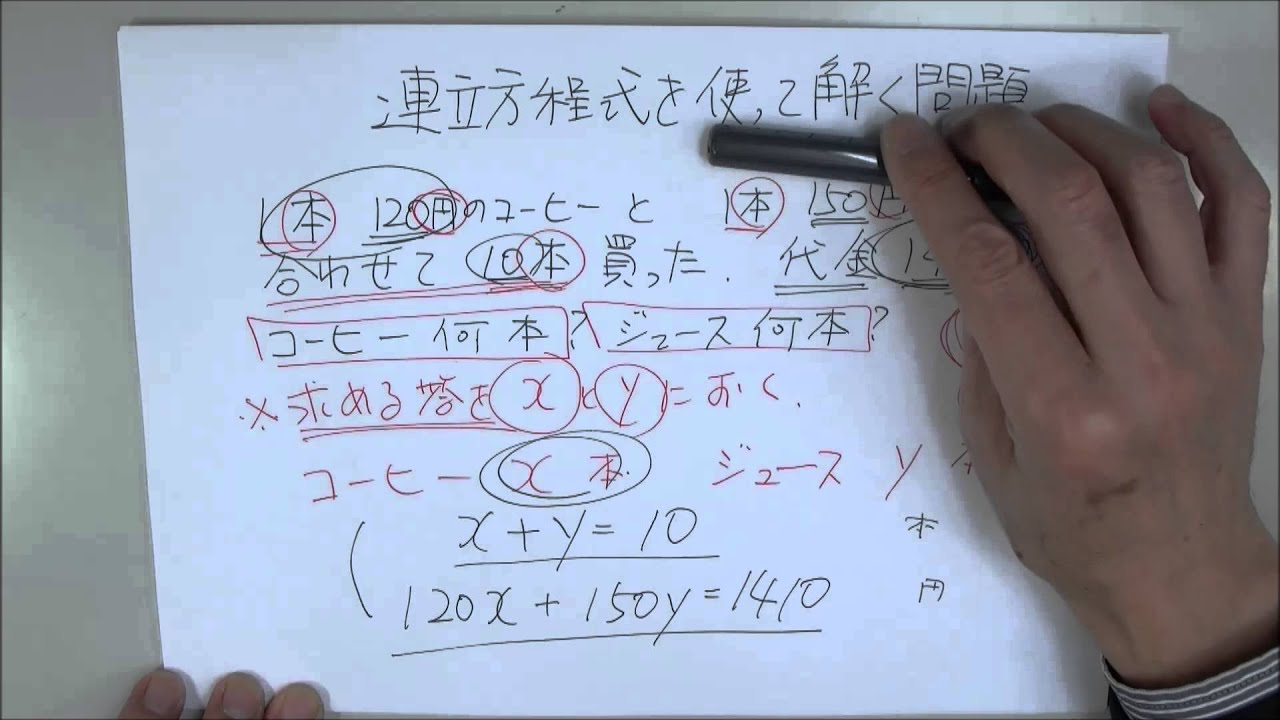 連立方程式を使って解く問題
1本 120円のコーヒーと 1本 150円
合わせて 10本 買った. 代金
コーヒー何本? ジュース何本?
※求める答をxとyにおく.
コーヒー x本 ジュース y
x+y=10 本
120x+150y=1410 円